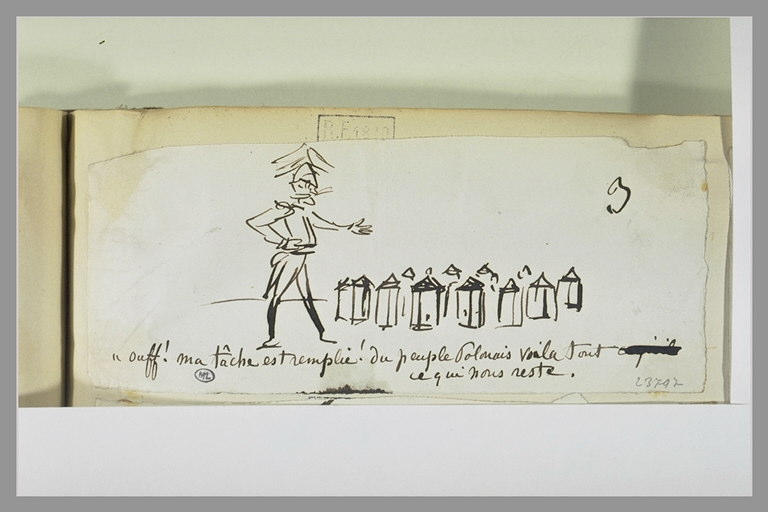 R.F. 1870
3
" ouff! ma tâche est remplie! Du peuple Polonais voila tout
ce qui nous reste.
ML
23747